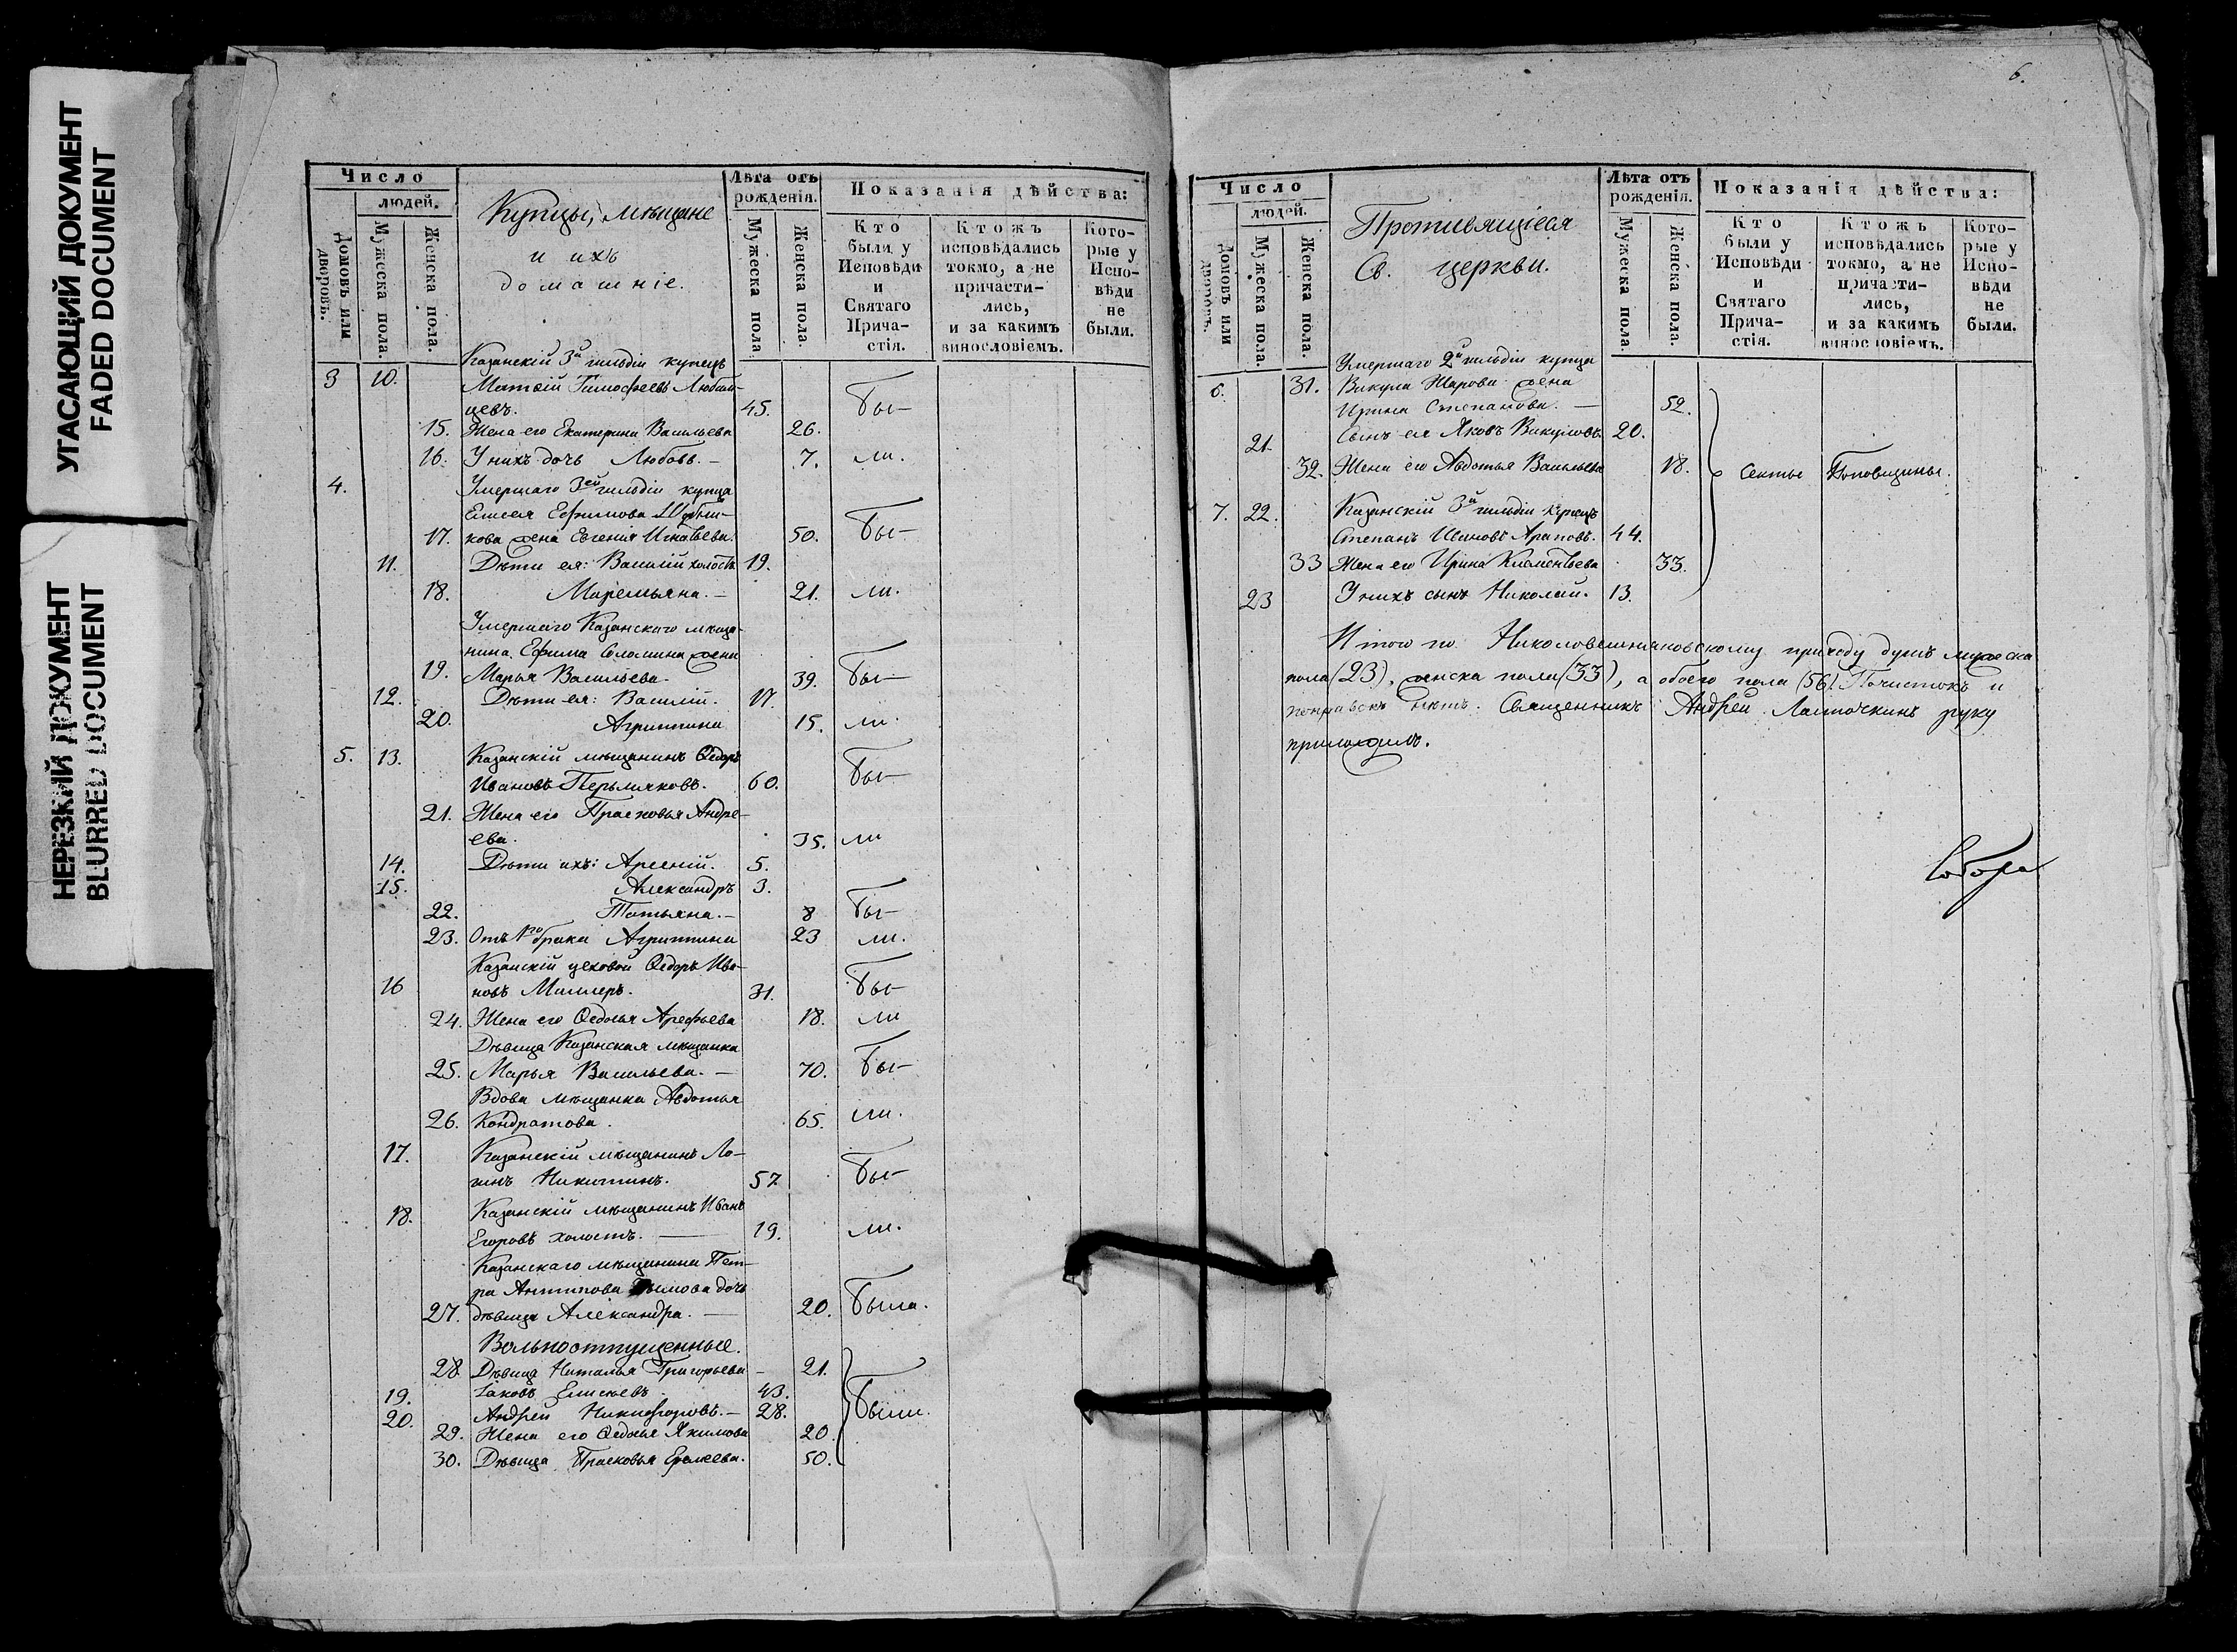 УГАСАЮЩИЙ ДОКУМЕНТ
FADED DOCUMENT
НЕРЕЗКИЙ ДОКУМЕНТ
BLURRED DOCUMENT
Число
людей.
Домовъ или дворовъ.
Мужеска пола.
Женска пола.
Купцы, мѣщане
и ихъ
домашніе.
Лѣта отъ рожденія.
Мужеска пола
Женска пола.
Показанія дѣйства:
Кто были у Исповѣди и Святаго Прича- стія.
Ктожъ исповѣдались токмо, а не причасти- лись, и за какимъ винословіемъ.
Кото- рые у Испо- вѣди не были.
Казанскій 3й гильдіи купецъ
3 10. Матвій Тимофеевъ Любим-
цевъ. 45. Бы-
15. Жена его Екатерина Васильева 26.
16. У нихъ дочь Любовь. – 7. ли.
4. Умершаго 3ей гильдіи купца
Елисея Ефимова
17. кова жена Евгенія Игнатьева. 50. Бы-
11. Дѣти ея: Василій холостъ 19.
18. Маремьяна. – 21. ли.
Умершаго Казанскаго мѣща-
нина Ефима Соломина жена
19. Марья Васильева. 39. Бы-
12. Дѣти ея: Василій. 17.
20. Агриппина 15. ли.
5. 13. Казанскій мѣщанинъ Ѳедоръ
Ивановъ Пермяковъ. 60. Бы-
21. Жена его Прасковья Андре-
ева. 35. ли
14. Дѣти ихъ: Арсеній. 5.
15. Александръ 3.
22. Татьяна. – 8 Бы-
23. Отъ 1го брака Агриппина 23 ли.
Казанскій цеховой Ѳедоръ Ива-
16 новъ Миллеръ. 31. Бы-
24. Жена его Ѳедосья Арефьева 18. ли
Дѣвица Казанская мѣщанка
25. Марья Васильева. – 70. Бы-
Вдова мѣщанка Авдотья
26. Кондратова. 65. ли.
17. Казанскій мѣщанинъ Ло-
гинъ Никитинъ. 57 Бы-
18. Казанскій мѣщанинъ Иванъ
Егоровъ холостъ. – 19. ли.
Казанскаго мѣщанина Пет-
ра Антипова дочь
27. дѣвица Александра. – 20. Была.
Вольноотпущенные.
28 Дѣвица Наталья Григорьева – 21.
19. Іаковъ Елисѣевъ 43.
20. Андрей Никифоровъ. – 28. Были.
29. Жена его Ѳедосья Якимова 20.
30. Дѣвица Прасковья Еремѣева. 50.
6.
Число
людей.
Домовъ или дворовъ.
Мужеска пола.
Женска пола.
Противящіеся
Св. церкви.
Лѣта отъ рожденія.
Мужеска пола.
Женска пола.
Показанія дѣйства:
Кто были у Исповѣди и Святаго Прича- стія.
Ктожъ исповѣдались токмо, а не причасти- лись, и за какимъ винословіемъ.
Кото- рые у Испо- вѣди не были.
Умершаго 2й гильдіи купца
6. 31. Викула Жарова жена
Ирина Степанова. – 52.
21. Сынъ ея Яковъ Викуловъ. 20.
32. Жена его Авдотья Васильева 18. Секты Поповщины.
7. 22. Казанскій 3й гильдіи купецъ
Степанъ Ивановъ Араповъ. 44.
33 Жена его Ирина Климентьева 33.
23 У нихъ сынъ Николай. 13.
Итого по Николовешняковскому приходу душъ мужеска
пола (23), женска пола (33), а обоего пола (56). Почистокъ и
поправокъ нѣтъ. Священникъ Андрей Лапочкинъ руку
приложилъ.
Собора